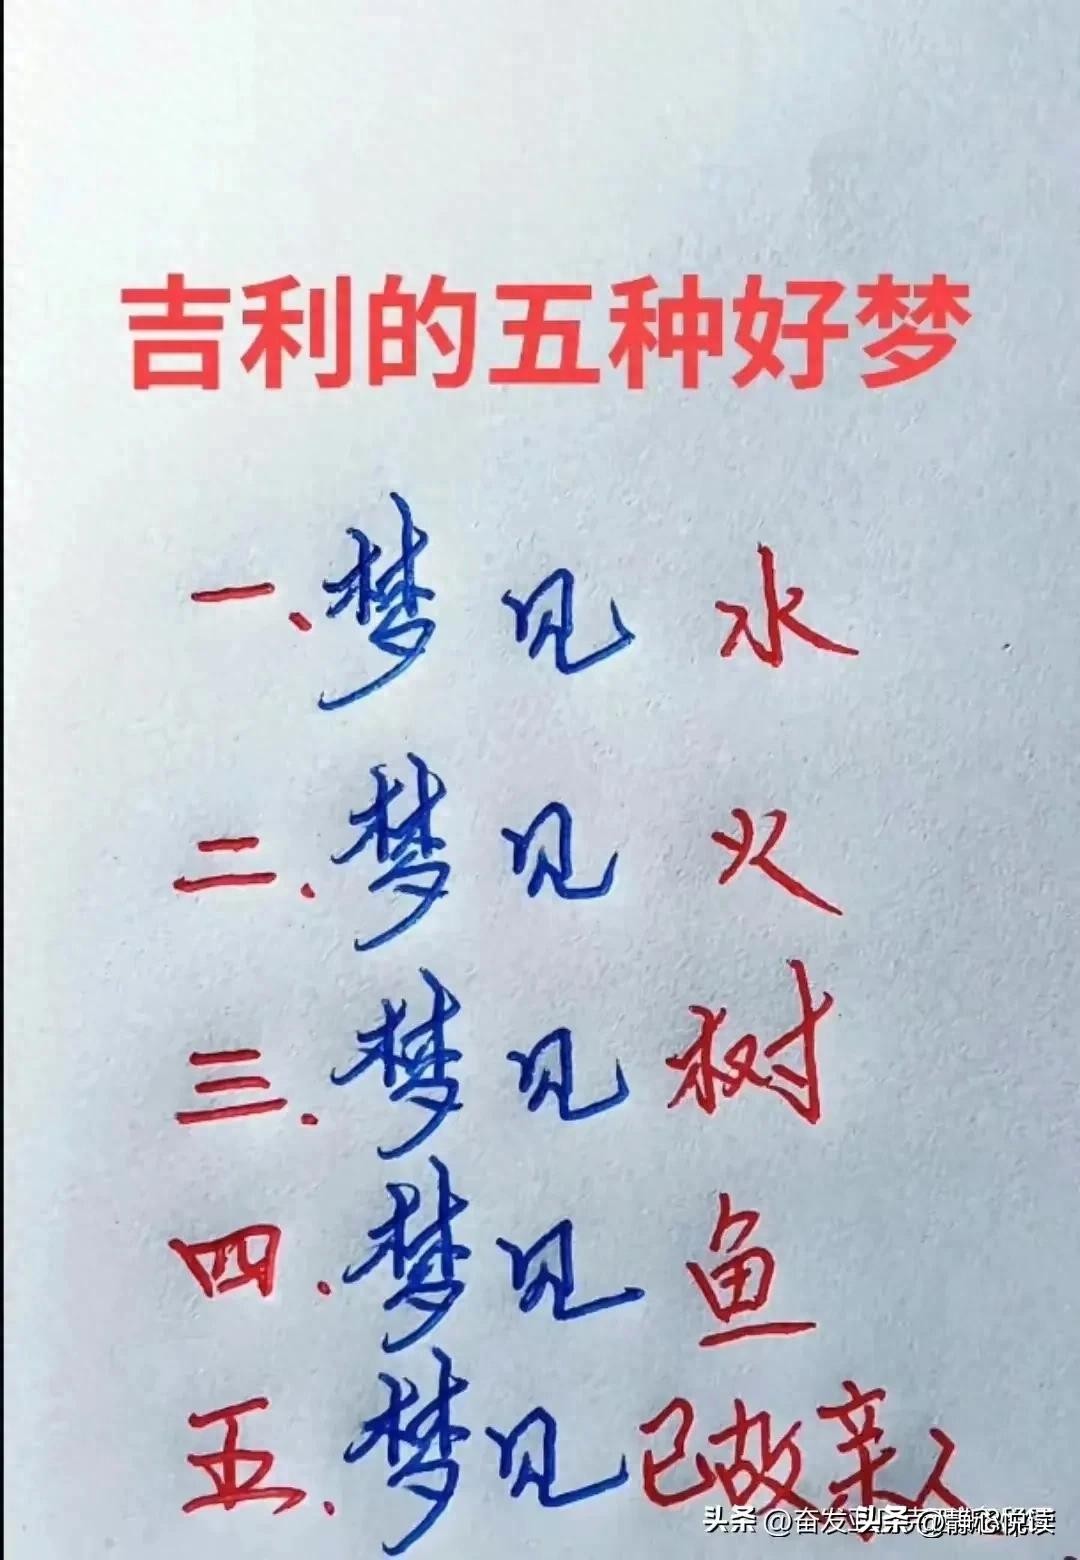 吉利的五种好梦
一、梦见水
二.梦见火
三.梦见树
四.梦见鱼
五.梦见已故亲人
头条 @静心悦读